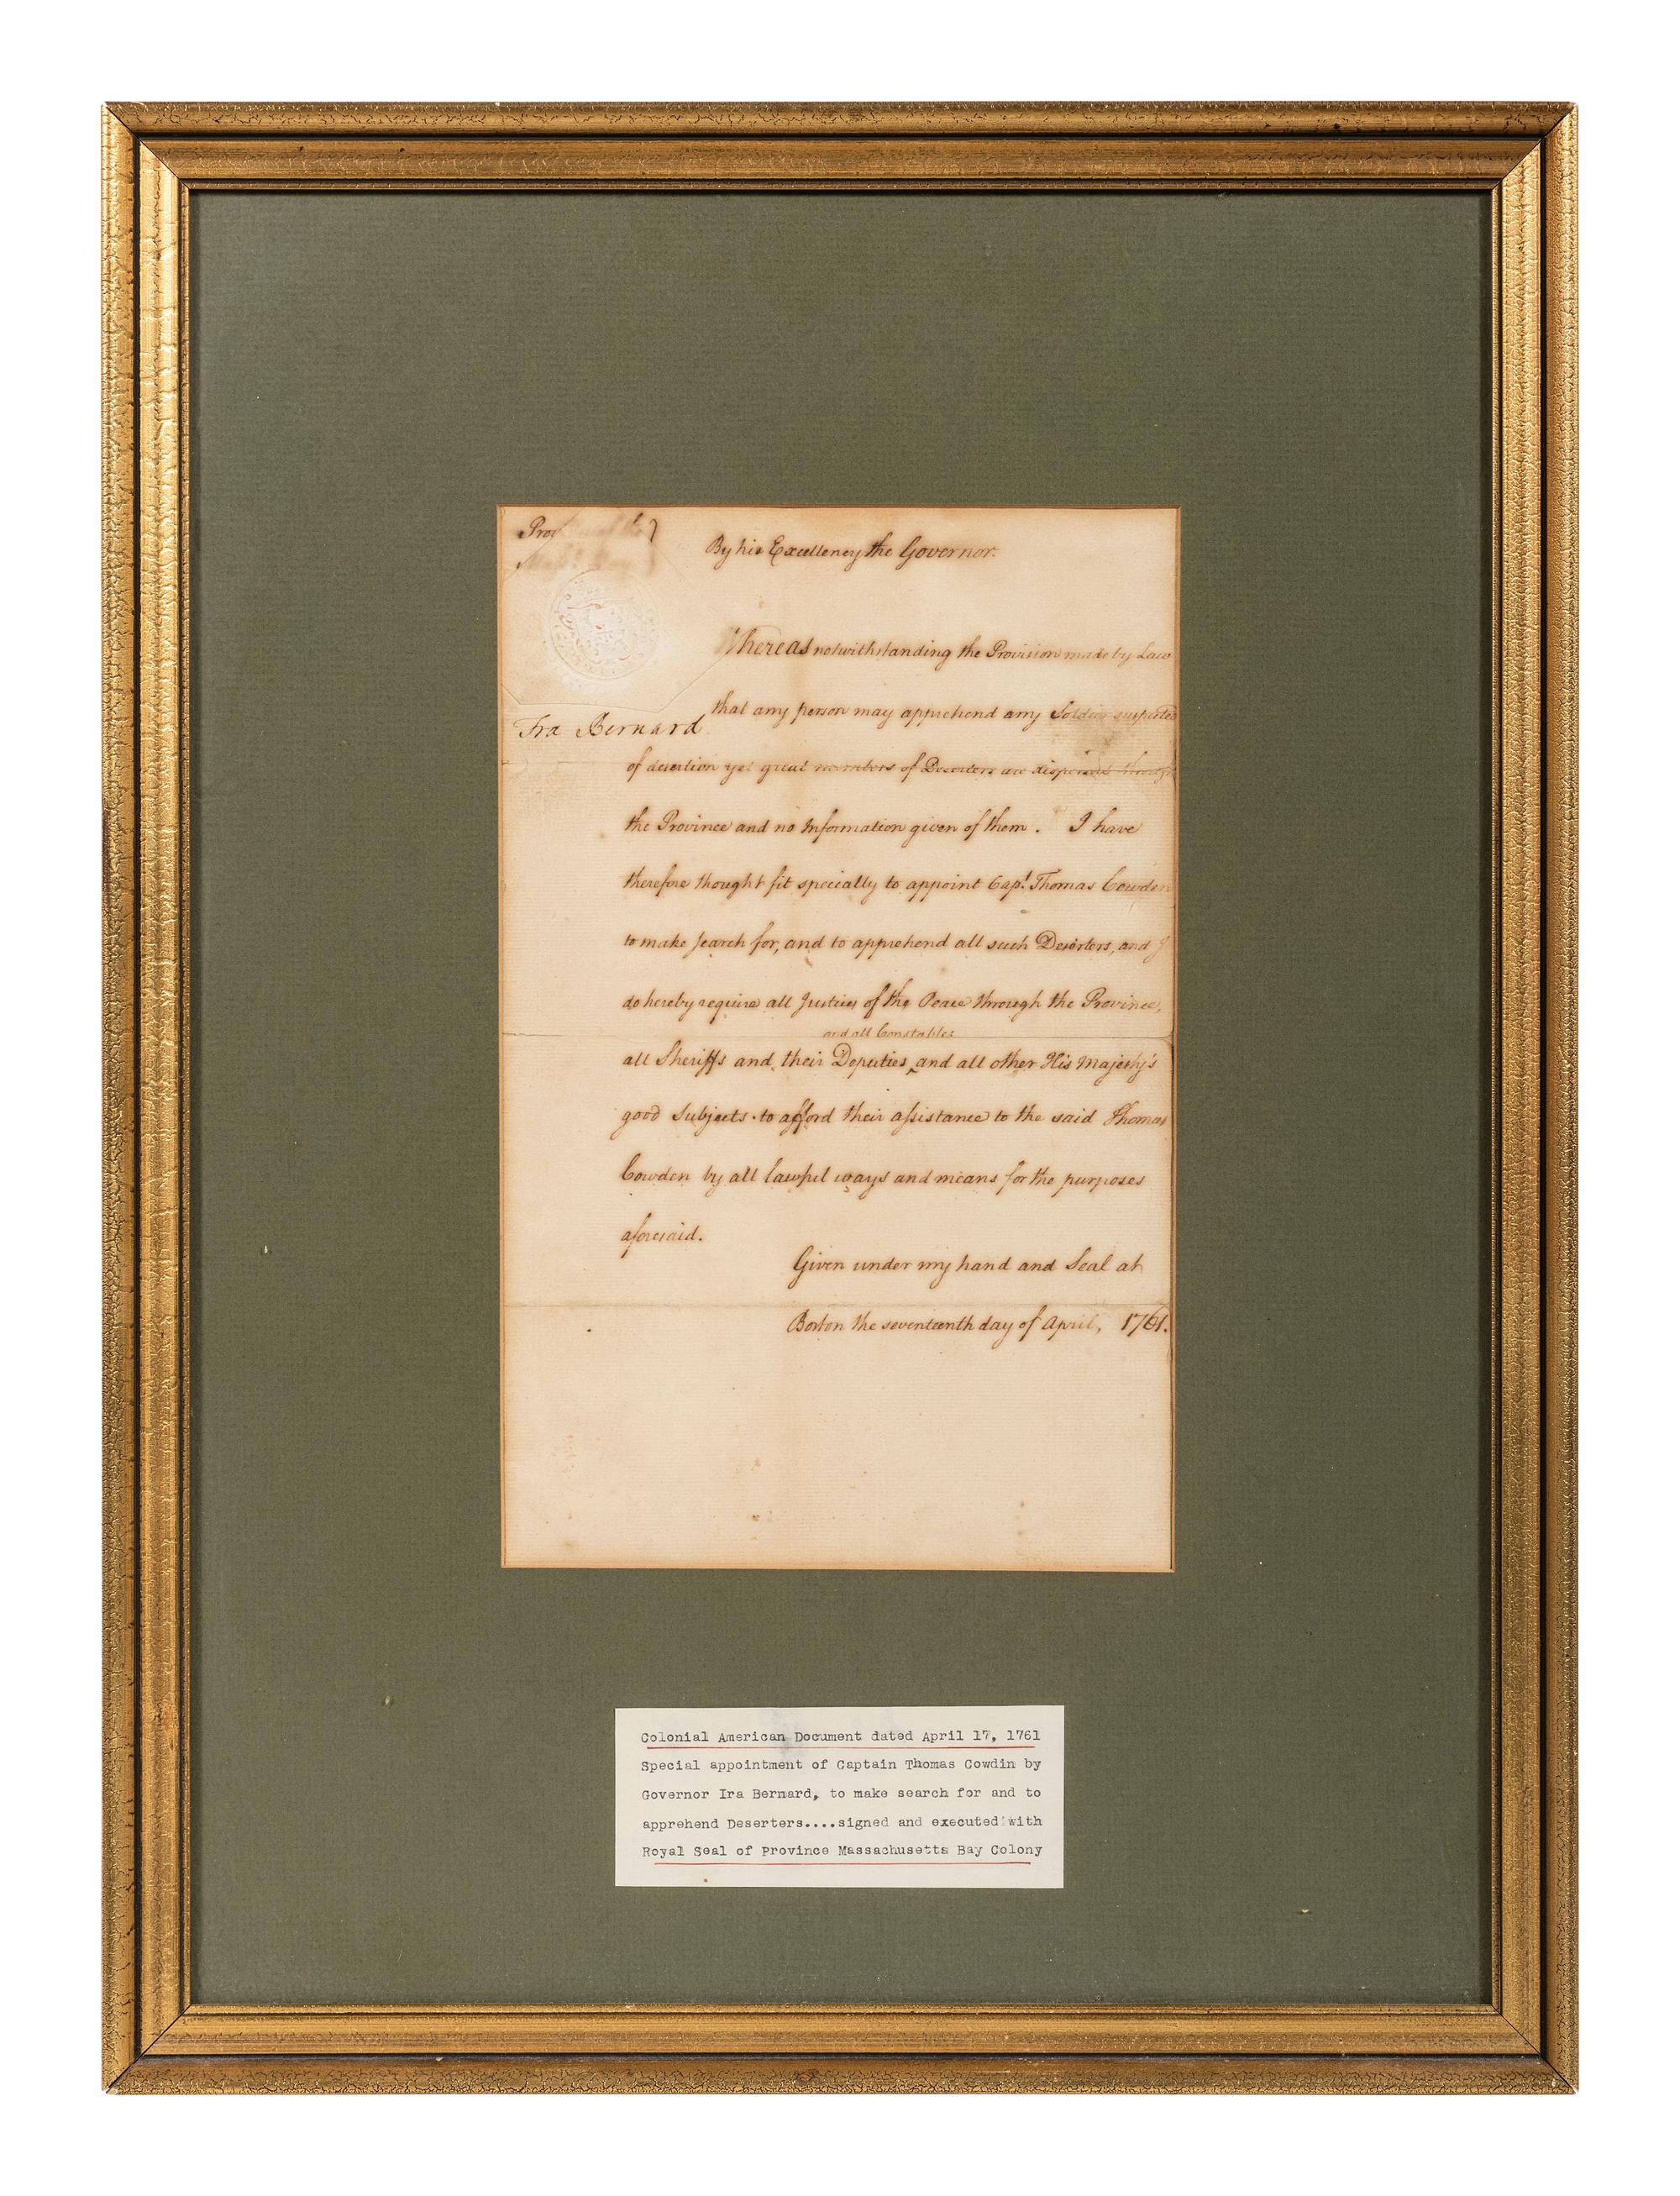 By his Excellency the Governor.
Whereas notwithstanding the Provision made by Law
that any person may apprehend any Soldier suspected
Fra Bernard
of desertion yet great numbers of Deserters are dispersed through
the Province and no Information given of them. I have
therefore thought fit specially to appoint Capt. Thomas Cowden
to make search for, and to apprehend all such Deserters, and I
do hereby require all Justices of the Peace through the Province,
and all Constables
all Sheriffs and their Deputies ‸ and all other His Majesty's
good Subjects to afford their assistance to the said Thomas
Cowden by all lawful ways and means for the purposes
aforesaid.
Given under my hand and Seal at
Boston the seventeenth day of April, 1761.
Colonial American Document dated April 17, 1761
Special appointment of Captain Thomas Cowdin by
Governor Ira Bernard, to make search for and to
apprehend Deserters....signed and executed with
Royal Seal of Province Massachusetts Bay Colony